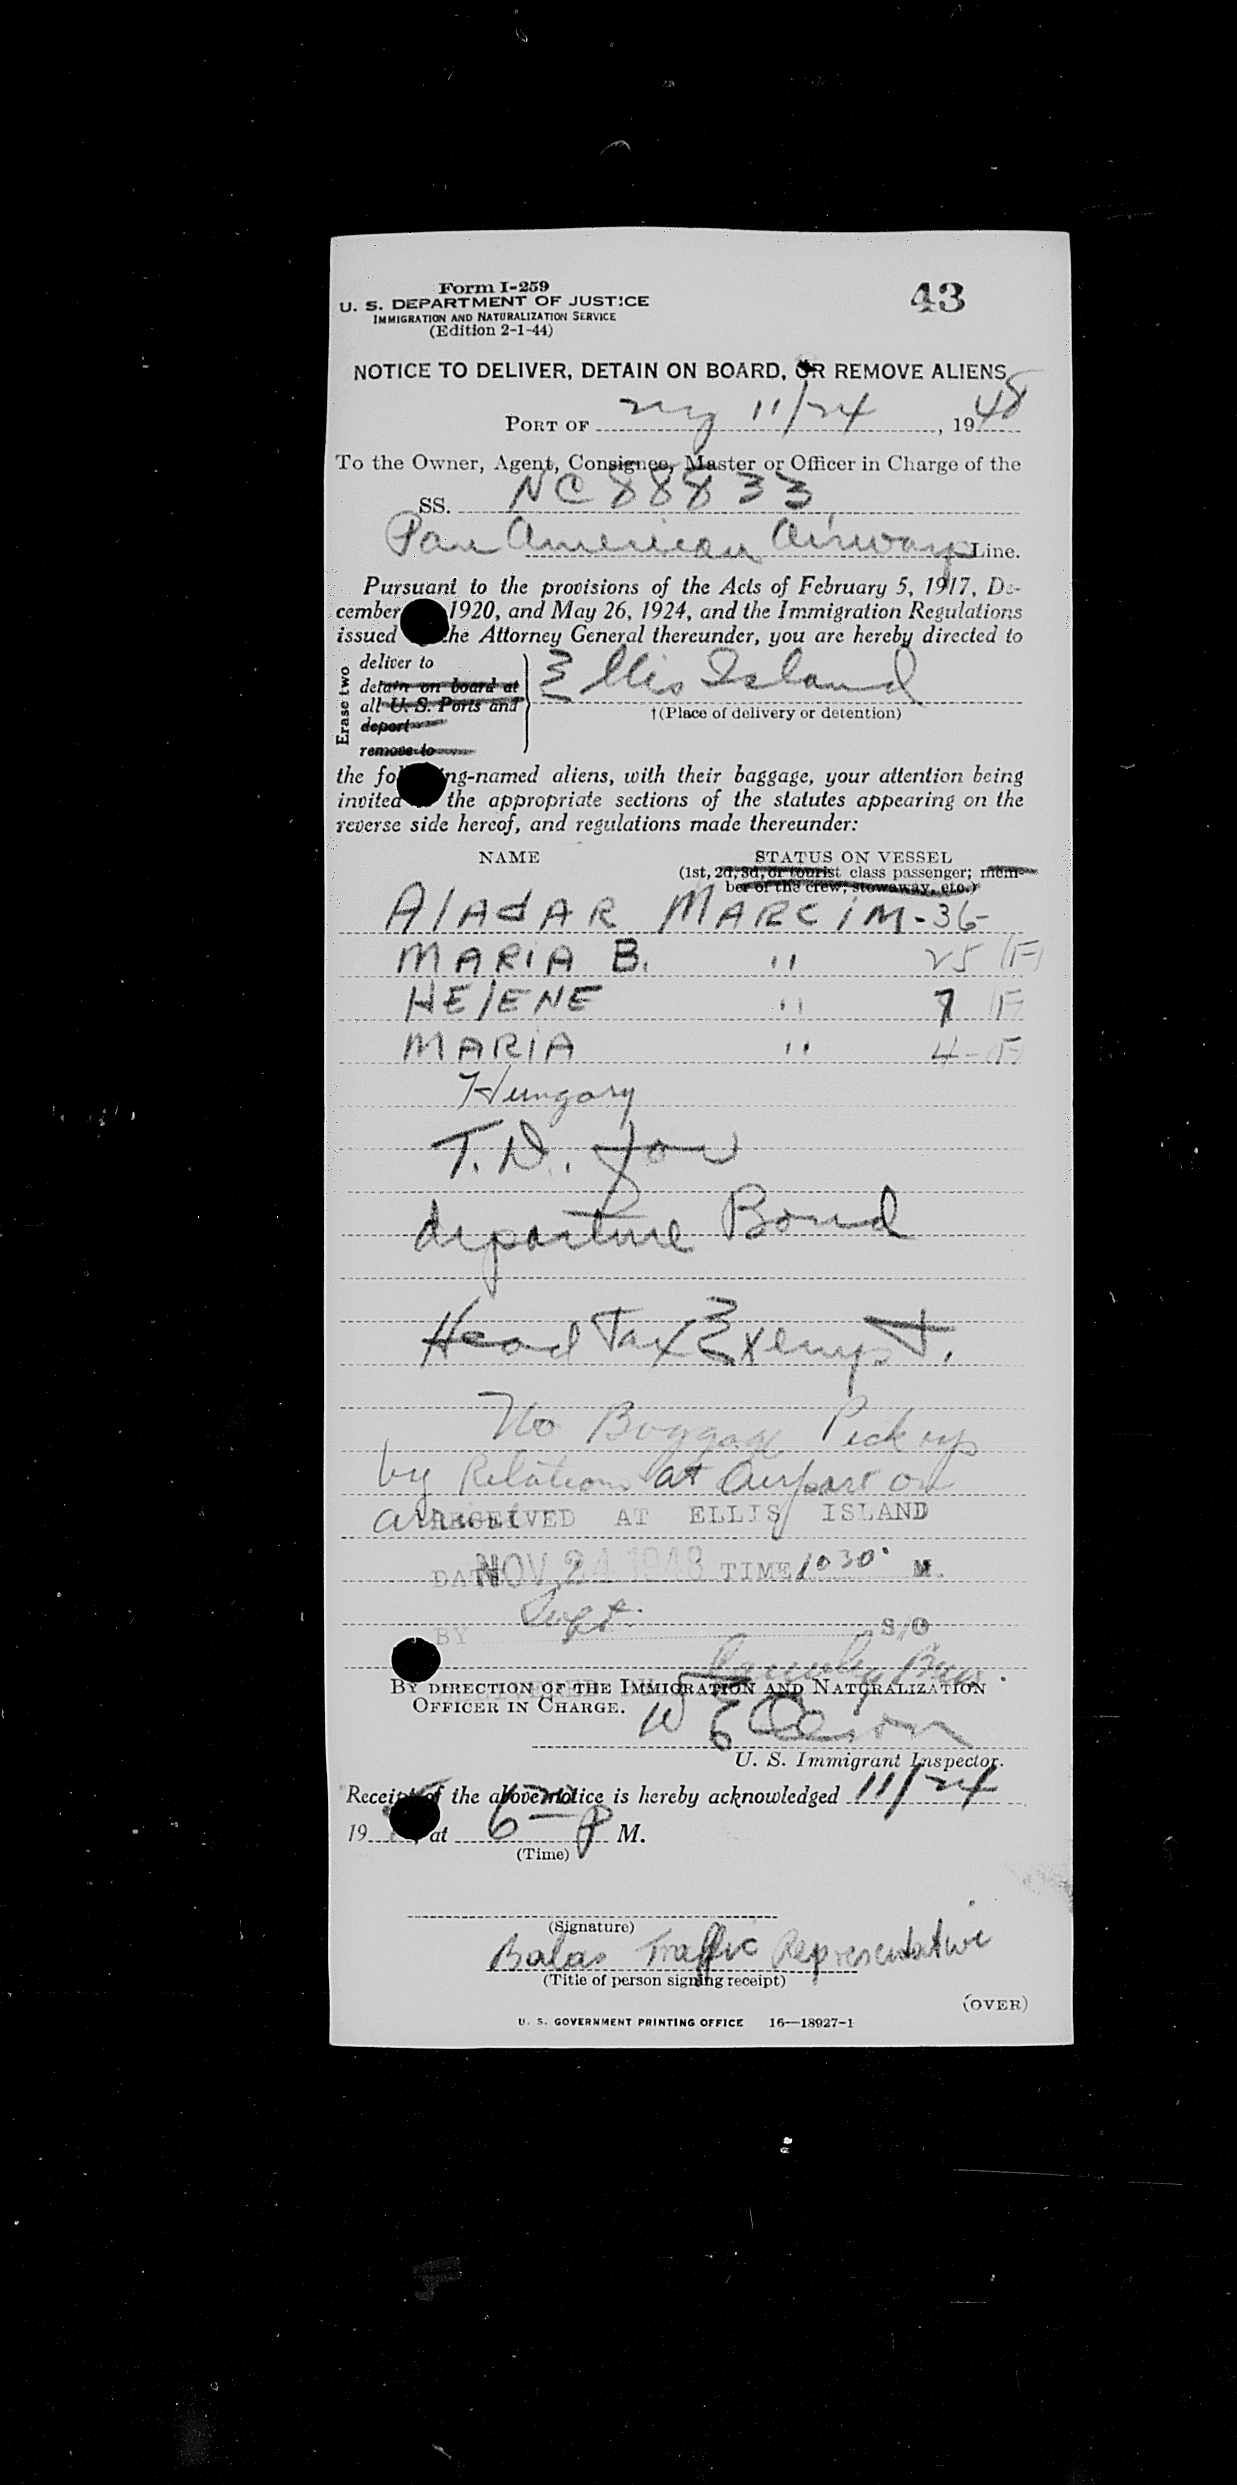 Form I-259
U. S. DEPARTMENT OF JUSTICE
IMMIGRATION AND NATURALIZATION SERVICE
(Edition 2-1-44)
43
NOTICE TO DELIVER, DETAIN ON BOARD, OR REMOVE ALIENS
PORT OF NY 11/24, 1948
To the Owner, Agent, Consignee, Master or Officer in Charge of the
SS. NC 88833
Pan American Airways Line.
Pursuant to the provisions of the Acts of February 5, 1917, De-
cember 1920, and May 26, 1924, and the Immigration Regulations
issued the Attorney General thereunder, you are hereby directed to
Erase two
deliver to
detain on board at
all U. S. Ports and
deport
remove to
Ellis Island
†(Place of delivery or detention)
the following-named aliens, with their baggage, your attention being
invited the appropriate sections of the statutes appearing on the
reverse side hereof, and regulations made thereunder:
NAME STATUS ON VESSEL
(1st, 2d, 3d, or tourist class passenger; mem-
ber of the crew, stowaway, etc.)
AlAdAR MARCiM - 36-
MARiA B. " 25 (F)
HElENE " 7 (F)
MARiA " 4 - (F)
Hungary
T.D. for
departure Bond
Head Tax Exempt.
No Baggage Pick up
by Relations at Airport on
arrival
RECEIVED AT ELLIS ISLAND
DATE NOV 24 1948 TIME 10 30 M.
BY Supt. S/O
BY DIRECTION OF THE IMMIGRATION AND NATURALIZATION
OFFICER IN CHARGE.
U. S. Immigrant Inspector.
Receipt of the above notice is hereby acknowledged 11/24
19 at 6 P M.
(Time)
(Signature)
Balas Traffic Representative
(Title of person signing receipt)
(OVER)
U. S. GOVERNMENT PRINTING OFFICE 16—18927-1